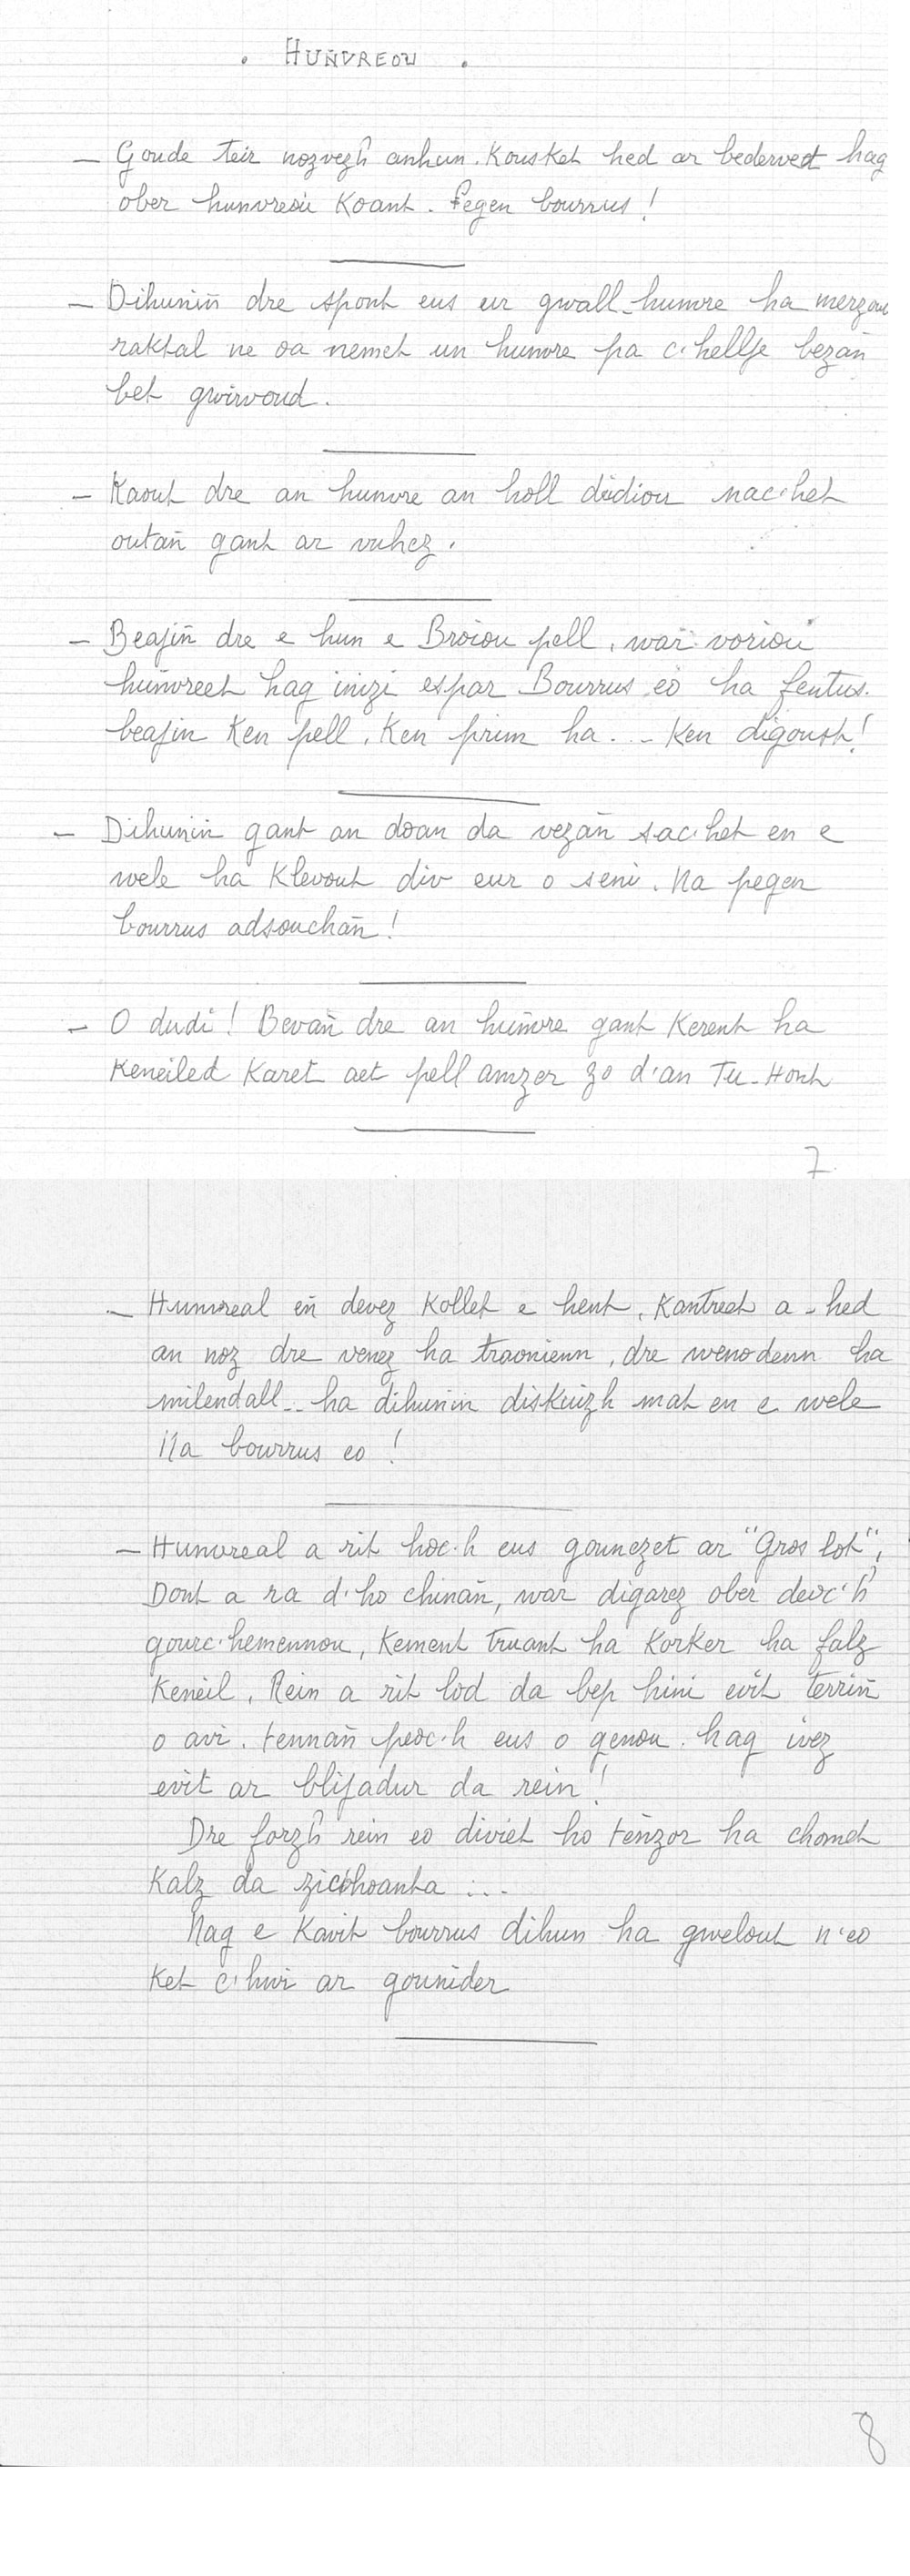 . HUÑVREOU .
— Goude teir nozvezh anhun. Kousket hed ar bederved hag
ober hunvreoù Koant. Pegen bourrus !
— Dihuniñ dre spont eus eur gwall-hunvre ha merzout
raktal ne oa nemet un hunvre pa c'hellfe bezañ
bet gwirvoud.
— Kaout dre an hunvre an holl dudiou nac'het
outañ gant ar vuhez.
— Beajiñ dre e hun e Broiou pell, war voriou
huñvreet hag inizi espar Bourrus eo ha fentus.
beajin Ken pell, Ken prim ha... Ken digoust !
— Dihuniñ gant an doan da vezañ sac'het en e
wele ha Klevout div eur o seni. Na pegen
bourrus adsouchañ !
— O dudi ! Bevañ dre an huñvre gant Kerent ha
Keneiled Karet aet pell amzer zo d'an Tu-Hont
7
— Hunvreal eñ devez Kollet e hent, Kantreet a-hed
an noz dre venez ha traonienn, dre wenodenn ha
milendall... ha dihunin diskuizh mat en e wele
Na bourrus eo !
— Hunvreal a rit hoc'h eus gounezet ar "Gros lot",
Dont a ra d'ho chinañ, war digarez ober deoc'h
gourc'hemennou, Kement truant ha Korker ha falz
Keneil, Rein a rit lod da bep hini evit terriñ
o avi. tennañ peoc'h eus o genou. hag ivez
evit ar blijadur da rein !
Dre forzh rein eo diviet ho teñzor ha chomet
Kalz da zic'hoanta ...
Nag e Kavit bourrus dihun ha gwelout n'eo
Ket c'hwi ar gounider
8